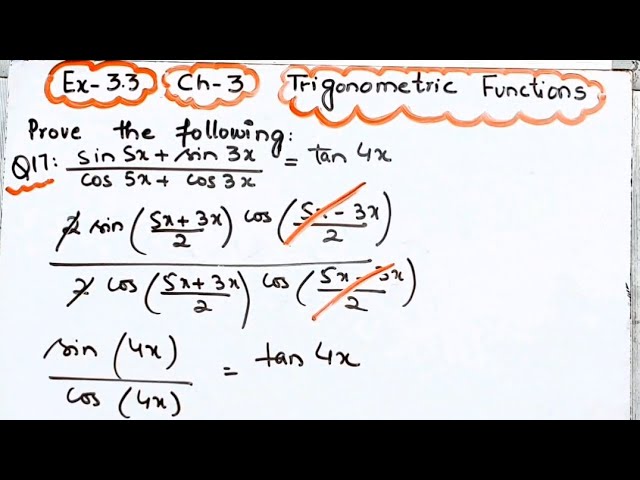 Ex-3.3 Ch-3 Trigonometric Functions
Prove the following:
Q17: sin 5x + sin 3x / cos 5x + cos 3x = tan 4x
2 sin (5x + 3x / 2) cos (5x - 3x / 2)
2 cos (5x + 3x / 2) cos (5x - 3x / 2)
sin (4x) / cos (4x) = tan 4x